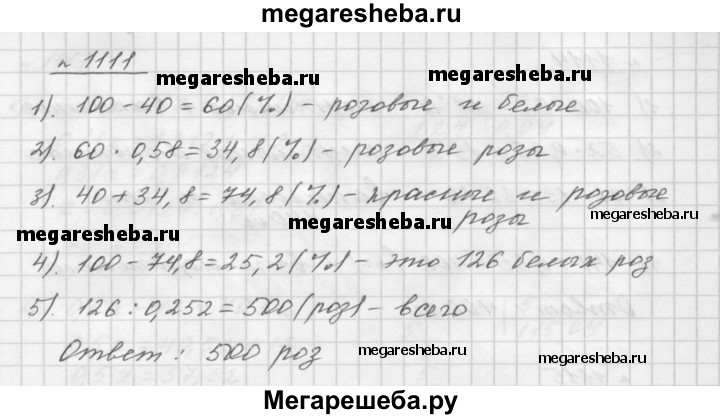 megaresheba.ru
№ 1111
megaresheba.ru
megaresheba.ru
1). 100 - 40 = 60 (%) - розовые и белые
2). 60 · 0,58 = 34,8 (%) - розовые розы
3). 40 + 34,8 = 74,8 (%) - красные и розовые
розы
megaresheba.ru
megaresheba.ru
4). 100 - 74,8 = 25,2 (%) - это 126 белых роз
5). 126 : 0,252 = 500 (роз) - всего
Ответ : 500 роз
megaresheba.ru
megaresheba.ru
Мегарешеба.ру